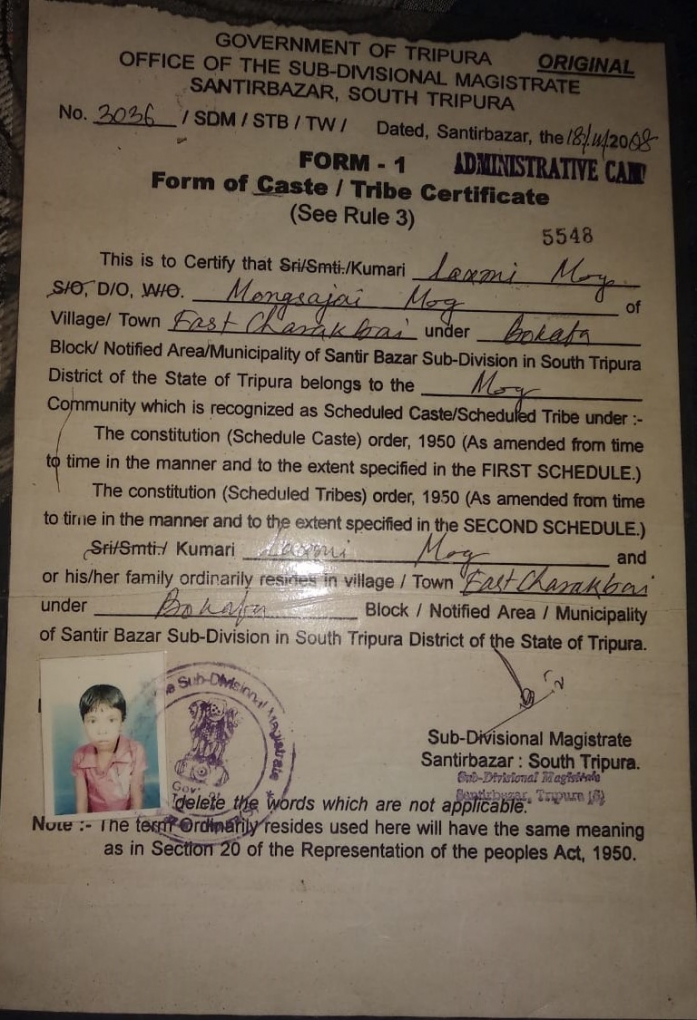 GOVERNMENT OF TRIPURA ORIGINAL
OFFICE OF THE SUB-DIVISIONAL MAGISTRATE
SANTIRBAZAR, SOUTH TRIPURA
No. 3036 / SDM / STB / TW / Dated, Santirbazar, the 18/11/2008
FORM - 1 ADMINISTRATIVE CAMP
Form of Caste / Tribe Certificate
(See Rule 3)
5548
This is to Certify that Sri/Smti./Kumari Laxmi Mog
S/O, D/O, W/O. Mongsajai Mog of
Village/ Town East Charakbai under Bokafa
Block/ Notified Area/Municipality of Santir Bazar Sub-Division in South Tripura
District of the State of Tripura belongs to the Mog
Community which is recognized as Scheduled Caste/Scheduled Tribe under :-
The constitution (Schedule Caste) order, 1950 (As amended from time
to time in the manner and to the extent specified in the FIRST SCHEDULE.)
The constitution (Scheduled Tribes) order, 1950 (As amended from time
to time in the manner and to the extent specified in the SECOND SCHEDULE.)
Sri/Smti./ Kumari Laxmi Mog and
or his/her family ordinarily resides in village / Town East Charakbai
under Bokafa Block / Notified Area / Municipality
of Santir Bazar Sub-Division in South Tripura District of the State of Tripura.
Sub-Divisional Magistrate
Sub-Divisional Magistrate
Santirbazar : South Tripura.
Sub-Divisional Magistrate
Santirbazar, Tripura (S)
delete the words which are not applicable.
Note :- The term Ordinarily resides used here will have the same meaning
as in Section 20 of the Representation of the peoples Act, 1950.